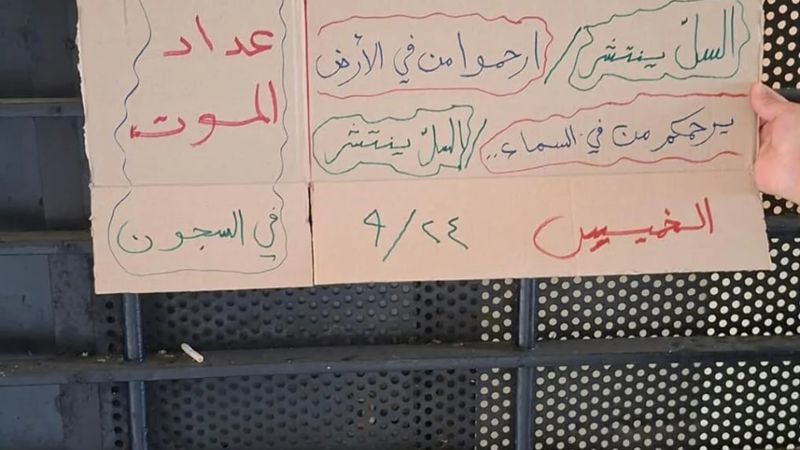 السلّ ينتشر / ارحموا من في الأرض
يرحمكم من في السماء.. / السلّ ينتشر
الخميس ٢٤/٩
عداد
الموت
في السجون